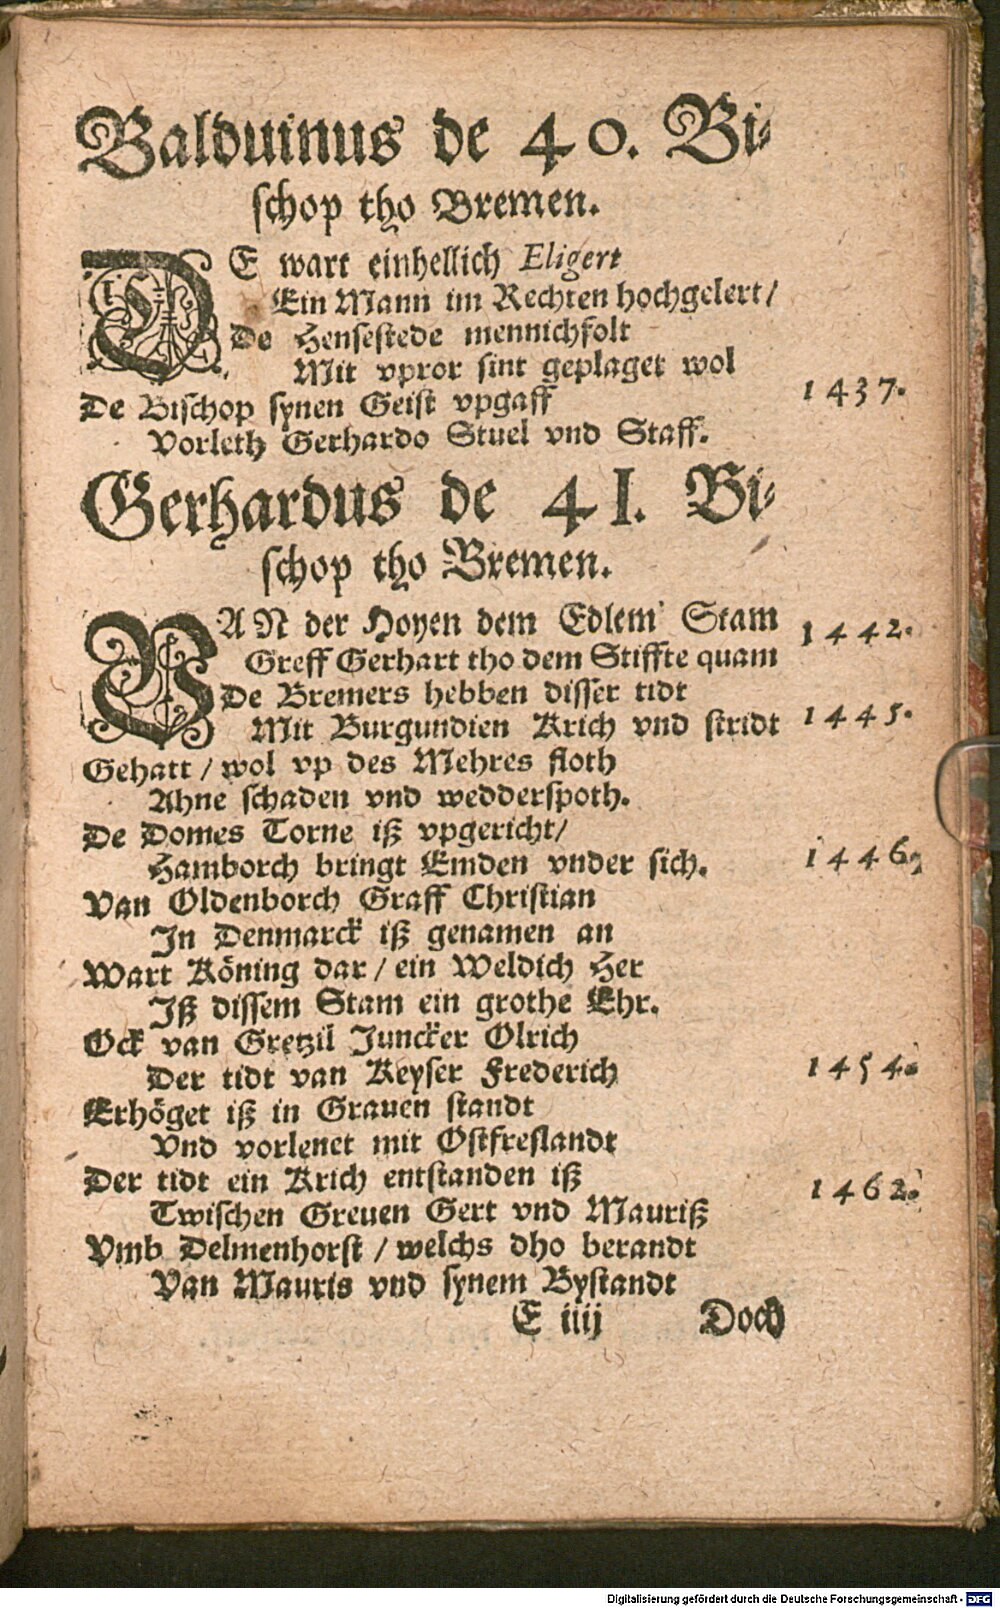 Balduinus de 40. Bi-
schop tho Bremen.
DE wart einhellich Eligert
Ein Mann im Rechten hochgelert/
De Hensestede mennichfolt
Mit vpror sint geplaget wol
De Bischop synen Geist vpgaff 1437.
Vorleth Gerhardo Stuel vnd Staff.
Gerhardus de 41. Bi-
schop tho Bremen.
VAN der Hoyen dem Edlem Stam 1442.
Greff Gerhart tho dem Stiffte quam
De Bremers hebben disser tidt
Mit Burgundien Krich vnd stridt 1445.
Gehatt / wol vp des Mehres floth
Ahne schaden vnd wedderspoth.
De Domes Torne iß vpgericht/
Hamborch bringt Emden vnder sich. 1446.
Van Oldenborch Graff Christian
In Denmarck iß genamen an
Wart Köning dar / ein Weldich Her
Iß dissem Stam ein grothe Ehr.
Ock van Gretzil Juncker Olrich
Der tidt van Keyser Frederich 1454.
Erhöget iß in Grauen standt
Vnd vorlenet mit Ostfreslandt
Der tidt ein Krich entstanden iß 1462.
Twischen Greuen Gert vnd Mauriß
Vmb Delmenhorst / welchs dho berandt
Van Mauris vnd synem Bystandt
E iiij Doch
Digitalisierung gefördert durch die Deutsche Forschungsgemeinschaft - DFG